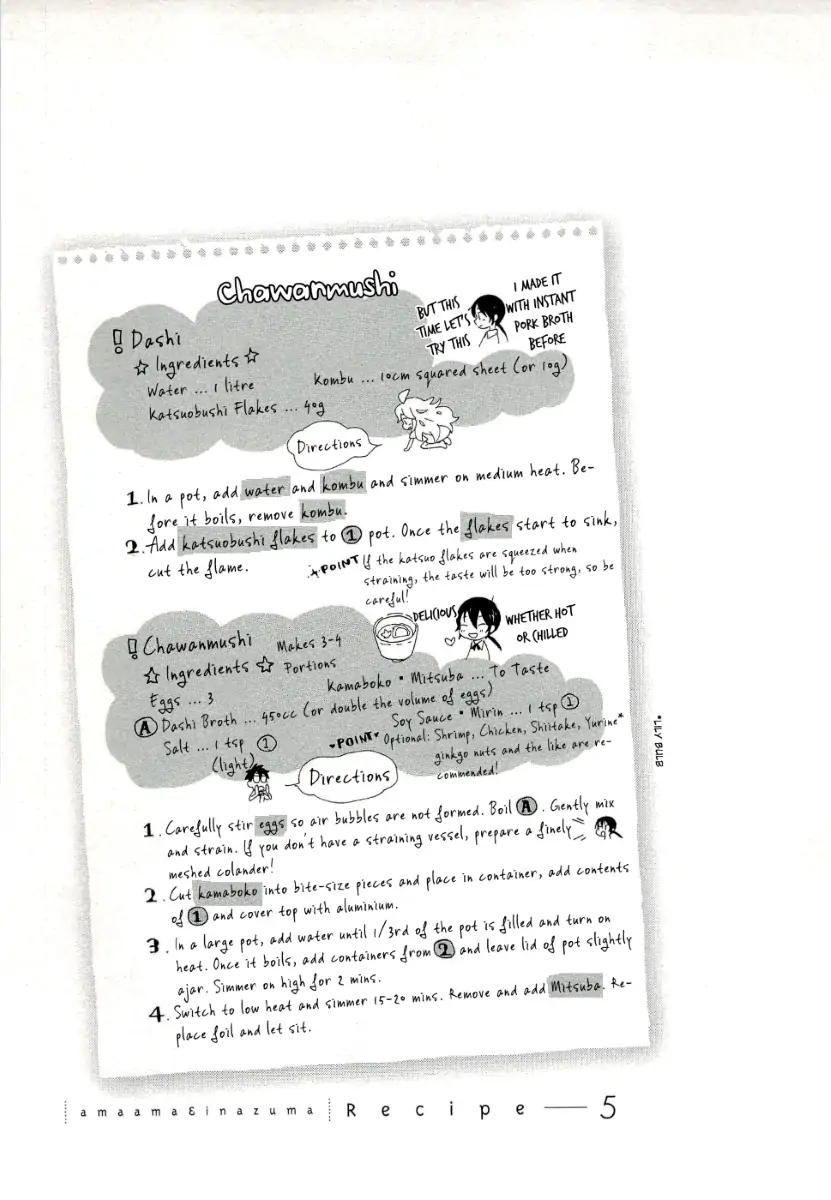 Chawanmushi
BUT THIS
TIME LET'S
TRY THIS
I MADE IT
WITH INSTANT
PORK BROTH
BEFORE
! Dashi
☆ Ingredients ☆
Water ... 1 litre
Kombu ... 10cm squared sheet (or 10g)
Katsuobushi Flakes ... 40g
Directions
1. In a pot, add water and kombu and simmer on medium heat. Be-
fore it boils, remove kombu.
2. Add katsuobushi flakes to ① pot. Once the flakes start to sink,
cut the flame.
POINT If the katsuo flakes are squeezed when
straining, the taste will be too strong, so be
careful!
DELICIOUS
WHETHER HOT
OR CHILLED
! Chawanmushi
Makes 3-4
Portions
☆ Ingredients ☆
Eggs ... 3
Kamaboko • Mitsuba ... To Taste
Ⓐ Dashi Broth ... 450cc (or double the volume of eggs)
Salt ... 1 tsp ①
Soy Sauce • Mirin ... 1 tsp ①
(light)
POINT Optional: Shrimp, Chicken, Shiitake, Yurine*
ginkgo nuts and the like are re-
commended!
*LILY BULB
Directions
1. Carefully stir eggs so air bubbles are not formed. Boil Ⓐ. Gently mix
and strain. If you don't have a straining vessel, prepare a finely
meshed colander!
2. Cut kamaboko into bite-size pieces and place in container, add contents
of ① and cover top with aluminium.
3. In a large pot, add water until 1/3rd of the pot is filled and turn on
heat. Once it boils, add containers from ② and leave lid of pot slightly
ajar. Simmer on high for 2 mins.
4. Switch to low heat and simmer 15-20 mins. Remove and add Mitsuba. Re-
place foil and let sit.
amaama&inazuma Recipe — 5